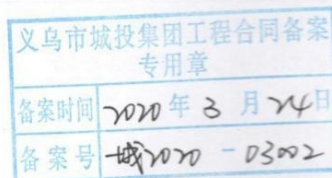 义乌市城投集团工程合同备案
专用章
备案时间 2020年3月24日
备案号 城2020-03002